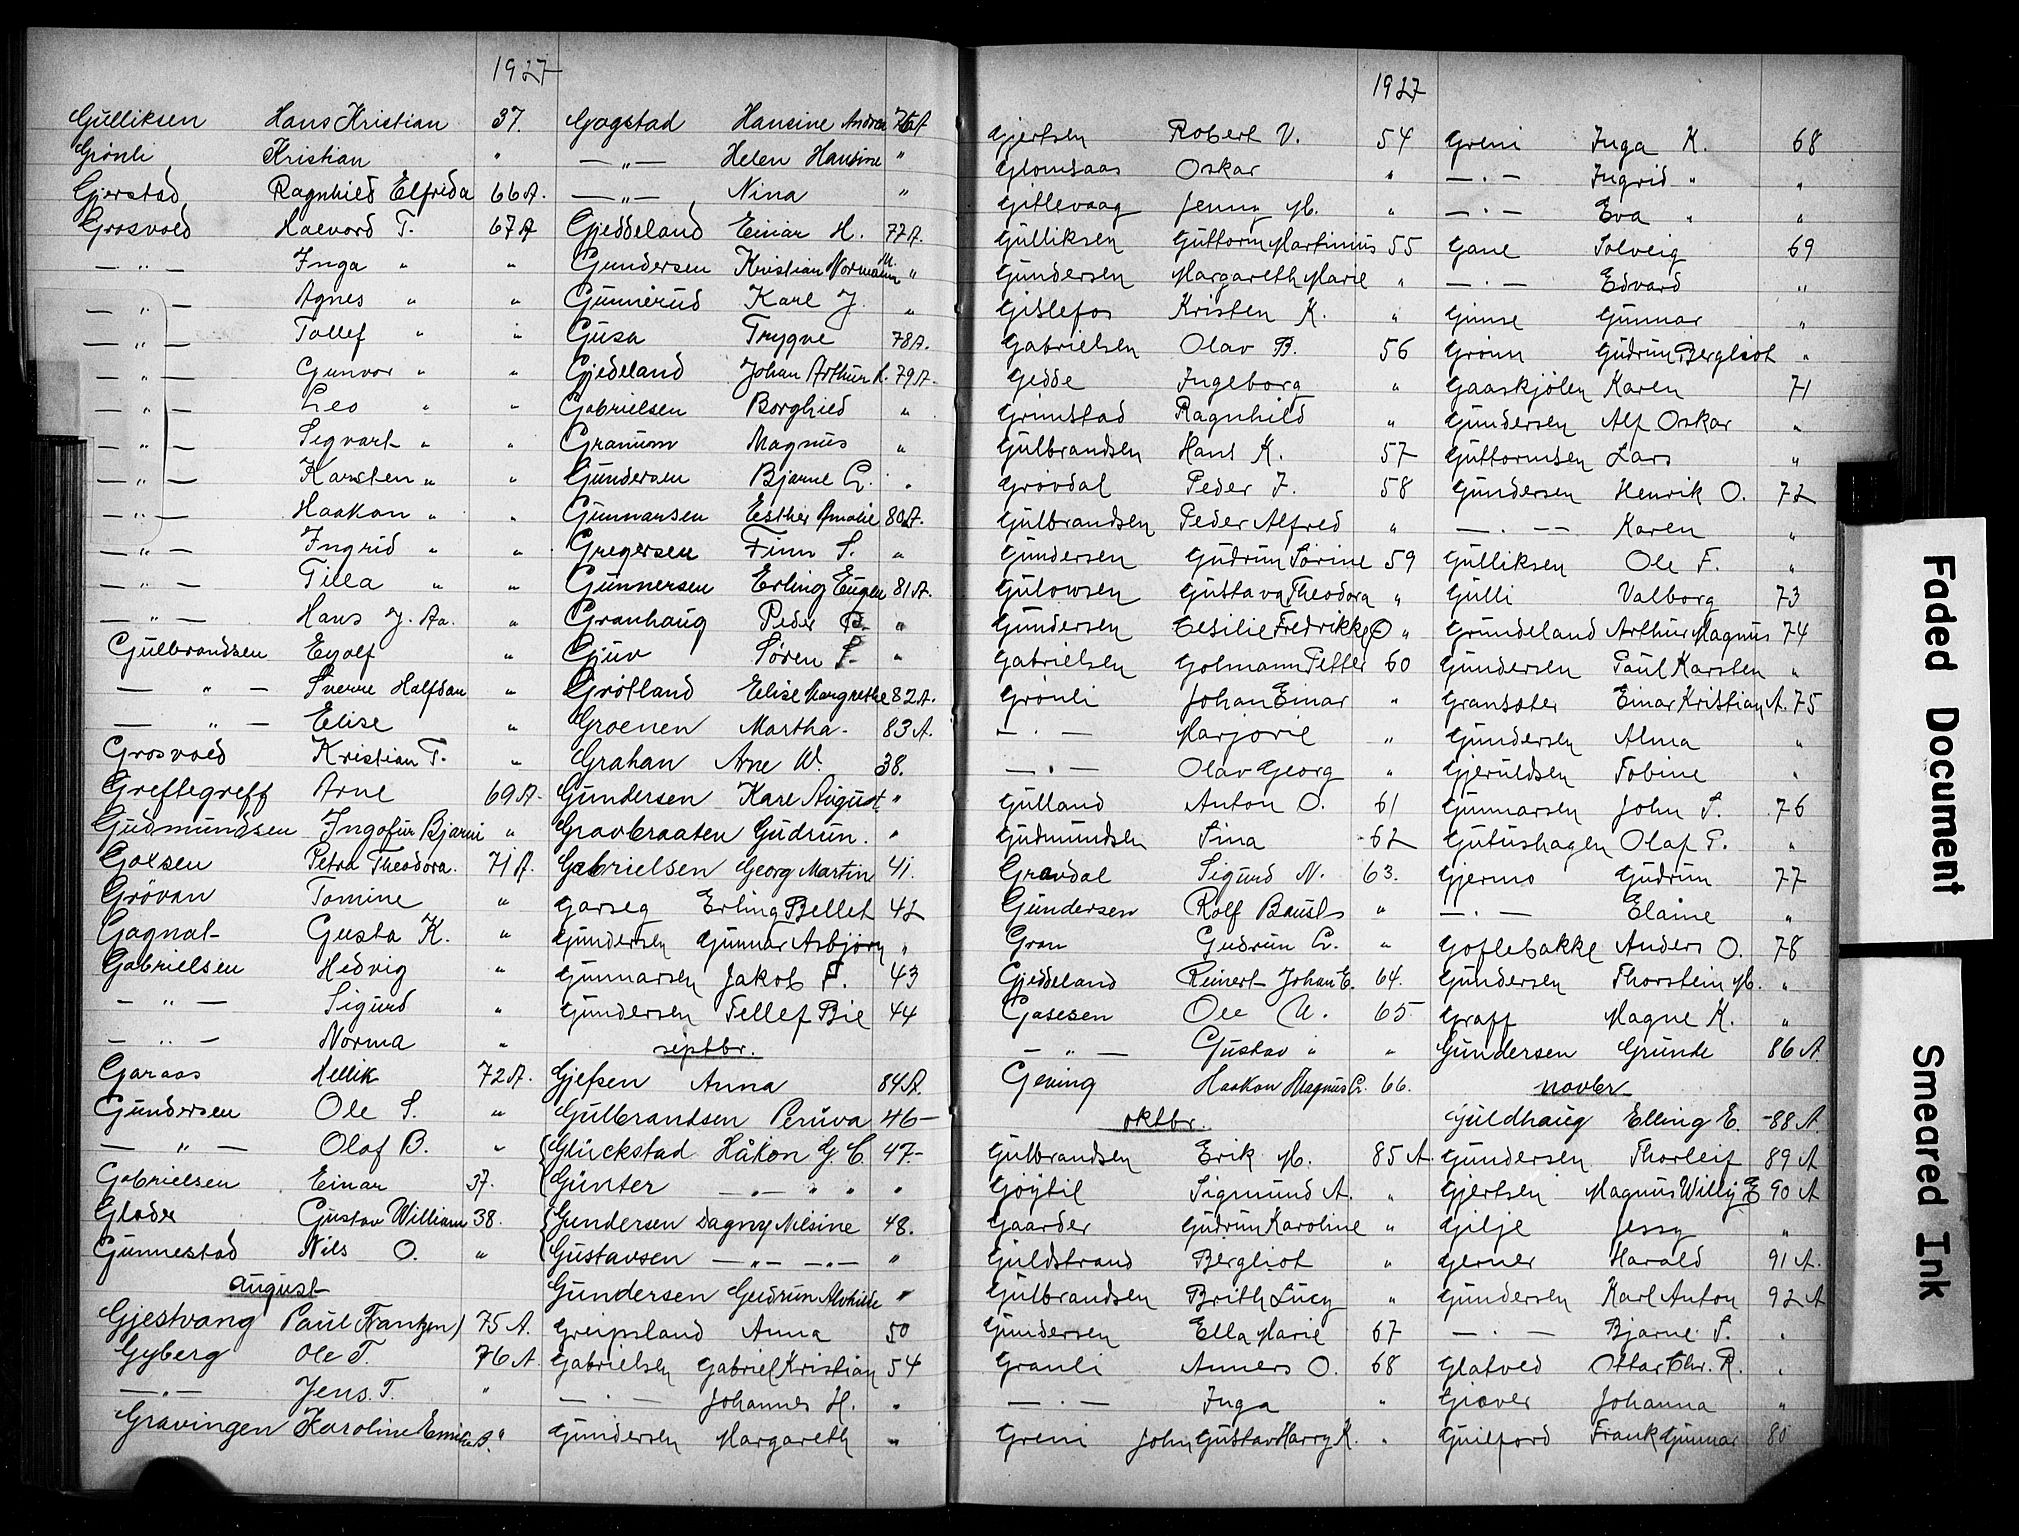 1927
Gulliksen Hans Kristian 37.
Grönli Kristian "
Gjerstad Ragnhild Elfrida 66 A.
Grosvold Halvord T. 67 A
— " — Inga " "
— " — Agnes " "
— " — Tallef " "
— " — Gunvor " "
— " — Leo " "
— " — Sigvart " "
— " — Karsten " "
— " — Haakon " "
— " — Ingrid " "
— " — Tilla " "
— " — Hans J. Aa. "
Gulbrandsen Eyolf "
— " — Sverre Halfdan "
— " — Elise "
Grosvold Kristian T. "
Greftegreff Arne 69 A.
Gudmundsen Ingofur Bjarni "
Golsen Petra Theodora. 71 A.
Grövan Tomine "
Gagnat Gusta K. "
Gabrielsen Hedvig "
— " — Sigurd "
— " — Norma "
Garaas Hellik 72 A.
Gundersen Ole S. "
— " — Olaf B. "
Gabrielsen Einar 37.
Glader Gustav William 38.
Gunnestad Nils O. "
august
Gjestvang Paul Frantzen) 75 A.
Gyberg Ole T. 76 A
— " — Jens. T. "
Gravingen Karoline Emilie A. "
Gogstad Hansine Andrea 76 A
— " — Helen Hansine "
— " — Nina "
Gjeddeland Einar H. 77 A.
Gundersen Kristian Normann M. "
Gunnerud Karl J. "
Gusa Trygve 78 A.
Gjedeland Johan Arthur K. 79 A.
Gabrielsen Borghild "
Granum Magnus "
Gundersen Bjarne G. "
Gunnarsen Esther Amalie 80 A.
Gregersen Finn S. "
Gunnersen Erling Eugen 81 A.
Granhaug Peder P. "
Gjuv Sören S. "
Grötland Elise Margrethe 82 A.
Groenen Martha. 83 A.
Grahan Arne W. 38.
Gundersen Karl August "
Gravbraaten Gudrun. "
Gabrielsen Georg Martin 41.
Garseg Erling Bellet 42
Gundersen Gunnar Asbjörn "
Gunnarsen Jakob F. 43
Gundersen Tellef Bie 44
septbr.
Gjefsen Anna 84 A.
Gulbrandsen Peruva 46-
(Glückstad Håkon G. C. 47.-
(Günter — " — " " "
(Gundersen Dagny Nilsine 48.
(Gustavsen — " — — " — "
Gundersen Gudrun Alvhilde "
Greipsland Anna 50
Gabrielsen Gabriel Kristian 54
— " — Johannes H. "
Gundersen Margareth "
1927
Gjertsen Robert V. 54
Glomsaas Oskar "
Gitlevaag Jenny M. "
Gulliksen Guttorm Martinius 55
Gundersen Margareth Marie "
Gislefos Kristen K. "
Gabrielsen Olav B. 56
Gedde Ingeborg "
Grimstad Ragnhild "
Gulbrandsen Hans K. 57
Grövdal Peder J. 58
Gulbrandsen Peder Alfred "
Gundersen Gudrun Sörine 59
Gulowsen Gustava Theodora "
Gundersen Cesilie Fredrikke O "
Gabrielsen Golmann Petter 60
Grönli Johan Einar "
— " — Marjorie "
— " — Olav Georg "
Gulland Anton O. 61
Gudmundsen Sina 62
Gravdal Sigurd N. 63.
Gundersen Rolf Baust "
Gran Gudrun G. "
Gjeddeland Reinert Johan E. 64.
Gasesen Ole U. 65
— " — Gustav " "
Geving Haakon Magnus G. 66.
oktbr.
Gulbrandsen Erik M. 85 A.
Göytil Sigmund A. "
Gaarder Gudrun Karoline "
Guldstrand Bergliot "
Gulbrandsen Brith Lucy "
Gundersen Ella Marie 67
Granli Anners O. 68
— " — Inga "
Greni John Gustav Harry K. "
Greni Inga K. 68
— " — Ingrid " "
— " — Eva " "
Gane Solveig 69
— " — Edvard "
Gimse Gunnar "
Grönn Gudrun Bergliot "
Gaaskjölen Karen 71
Gundersen Alf Oskar "
Guttormsen Lars "
Gundersen Henrik O. 72
— " — Karen "
Gulliksen Ole F. "
Gulli Valborg 73
Grundeland Arthur Magnus 74
Gundersen Paul Karsten "
Gransäter Einar Kristian A. 75
Gundersen Alma "
Gjeruldsen Tobine "
Gunnarsen John S. 76
Gutushagen Olaf P. "
Gjermo Gudrun 77
— " — Elaine "
Goflebakke Anders O. 78
Gundersen Thorstein M. "
Graff Magne K. "
Gundersen Grunde 86 A
novbr
Guldhaug Elling E. 88 A
Gundersen Thorleif 89 A
Gjertsen Magnus Willy E 90 A
Gilje Jessy "
Gerner Harald 91 A.
Gundersen Karl Anton 92 A
— " — Bjarne S. "
Glatved Ottar Chr. R. "
Giæver Johanna "
Guilford Frank Gunnar 80
Faded Document
Smeared Ink